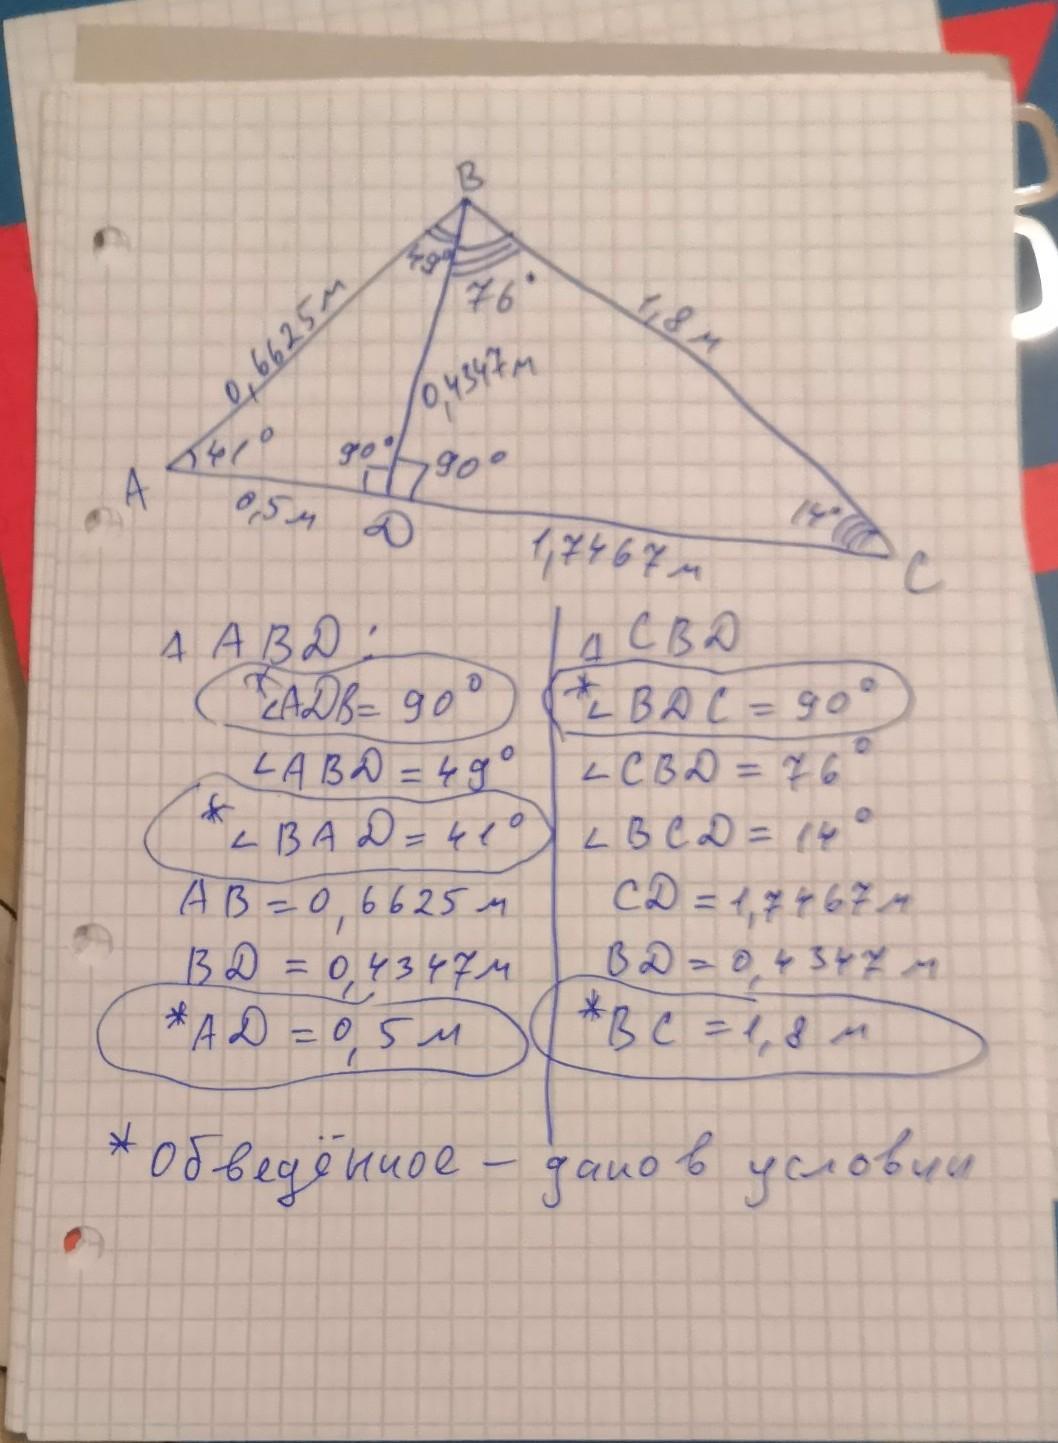 B
49°
76°
0,6625 м
1,8 м
0,4347 м
41°
90°
90°
A
0,5 м
D
14°
1,7467 м
C
Δ ABD:
*∠ADB = 90°
∠ABD = 49°
*∠BAD = 41°
AB = 0,6625 м
BD = 0,4347 м
*AD = 0,5 м
Δ CBD
*∠BDC = 90°
∠CBD = 76°
∠BCD = 14°
CD = 1,7467 м
BD = 0,4347 м
*BC = 1,8 м
*Обведённое – дано в условии